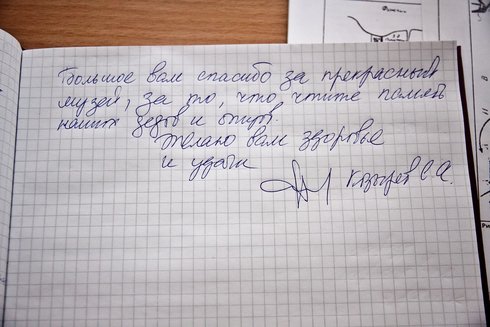 Большое вам спасибо за прекрасный
музей, за то, что чтите память
наших дедов и отцов.
Желаю вам здоровья
и удачи
С.А.